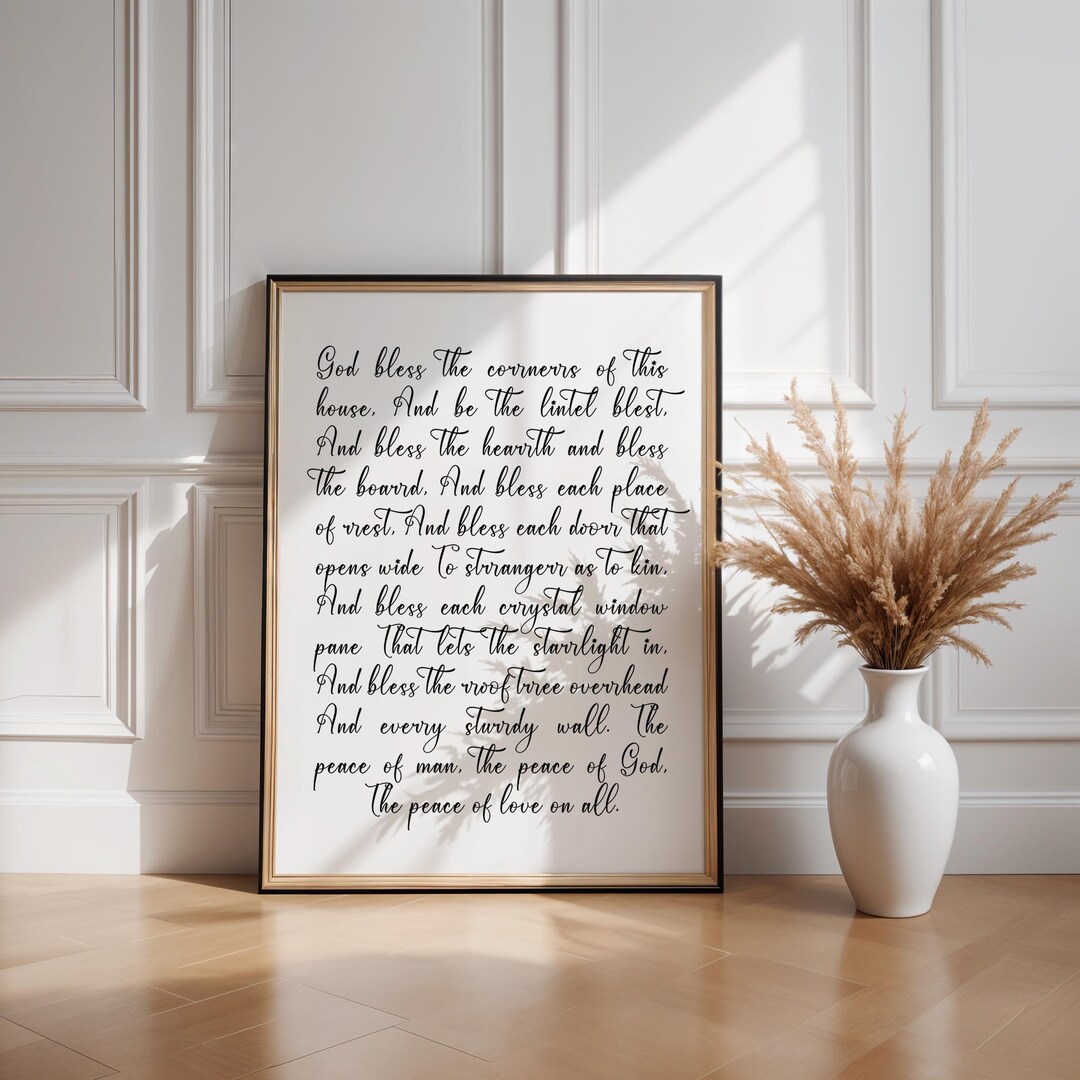 God bless the corners of this
house, And be the lintel blest,
And bless the hearth and bless
the board, And bless each place
of rest, And bless each door that
opens wide To stranger as to kin,
And bless each crystal window
pane That lets the starlight in,
And bless the roof tree overhead
And every sturdy wall. The
peace of man, the peace of God,
The peace of love on all.